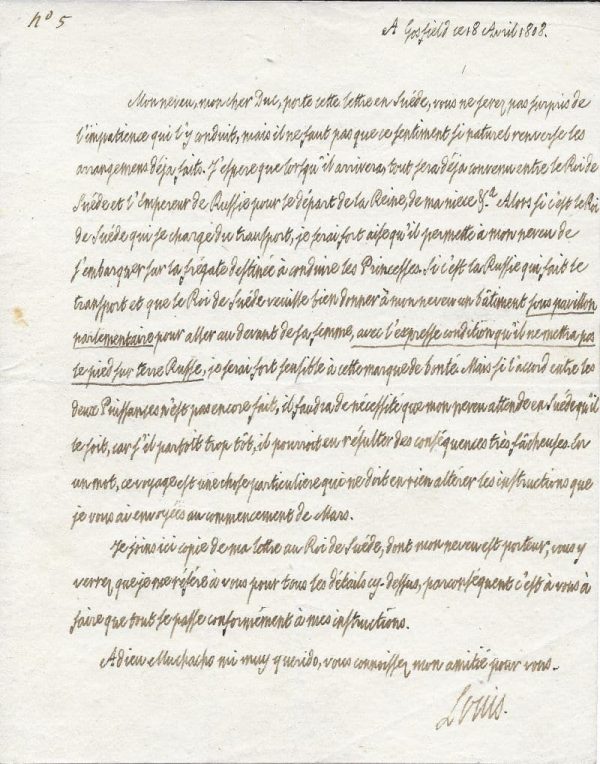 nº 5
A Gosfield ce 18 Avril 1808.
Mon neveu, mon cher Duc, porte cette lettre en Suéde, vous ne serez pas surpris de
l'impatience qui l'y conduit, mais il ne faut pas que ce sentiment si naturel renverse les
arrangemens déja faits. J'espere que lorsqu'il arrivera, tout sera déja convenu entre le Roi de
Suéde et l'Empereur de Russie pour le départ de la Reine, de ma niece &.ª Alors si c'est le Roi
de Suéde qui se charge du transport, je serai fort aise qu'il permette à mon neveu de
s'embarquer sur la frégate destinée à conduire les Princesses. Si c'est la Russie qui fait le
transport et que le Roi de Suéde veuille bien donner à mon neveu un bâtiment sous pavillon
parlementaire pour aller au devant de sa femme, avec l'expresse condition qu'il ne mettra pas
le pied sur terre Russe, je serai fort sensible à cette marque de bonté. Mais si l'accord entre les
deux Puissances n'est pas encore fait, il faudra de nécessité que mon neveu attende en Suéde qu'il
le soit, car s'il partoit trop tôt, il pourroit en résulter des conséquences très fâcheuses. En
un mot, ce voyage est une chose particuliere qui ne doit en rien altérer les instructions que
je vous ai envoyées au commencement de Mars.
Je joins ici copie de ma lettre au Roi de Suéde, dont mon neveu est porteur, vous y
verrez que je me réfère à vous pour tous les détails cy-dessus, par conséquent c'est à vous à
faire que tout se passe conformément à mes instructions.
Adieu Muchacho mi muy querido, vous connoissez mon amitié pour vous.
Louis.